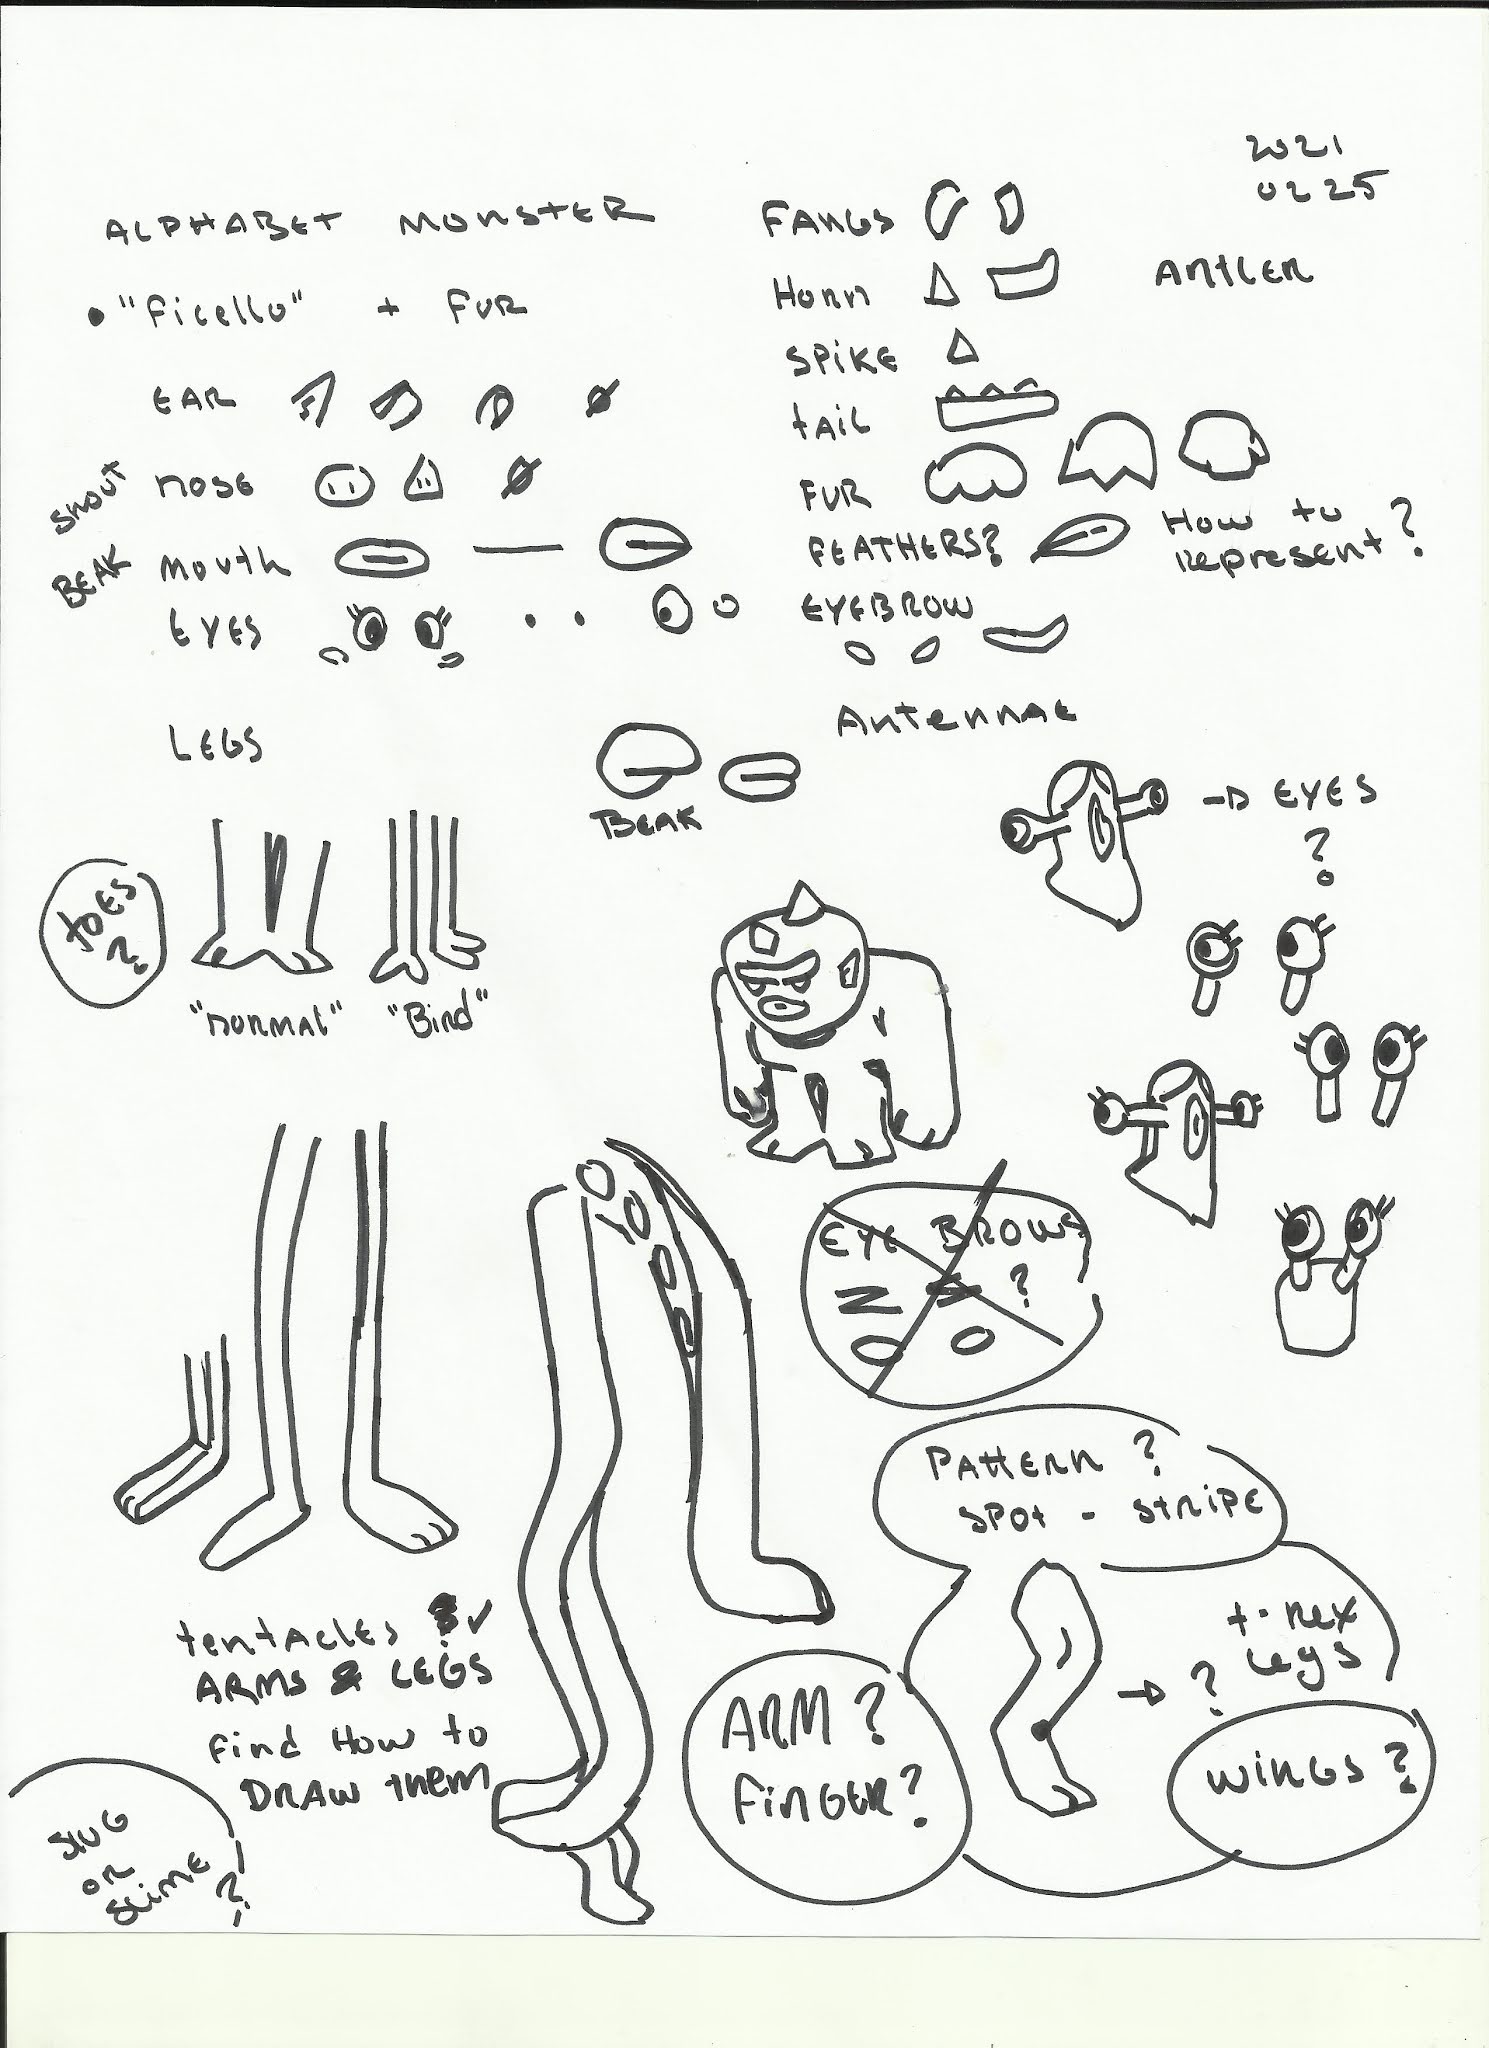 2021
02 25
ALPHABET MONSTER
• "Ficello" + FUR
EAR
SNOUT
NOSE
BEAK
MOUTH
EYES
LEGS
BEAK
FANGS
HORN
ANTLER
SPIKE
tAIL
FUR
FEATHERS?
How to
represent?
EYEBROW
Antennae
→ EYES
?
tOES
?
"NORMAL"
"Bird"
EYE BROWS
?
PAttERN ?
SPOt - StRIPE
t-rex
Legs
→ ?
tentACLES ✓
ARMS & LEGS
Find How to
DRAW them
ARM?
FINGER?
WINGS?
SLUG
OR
SLIME
?